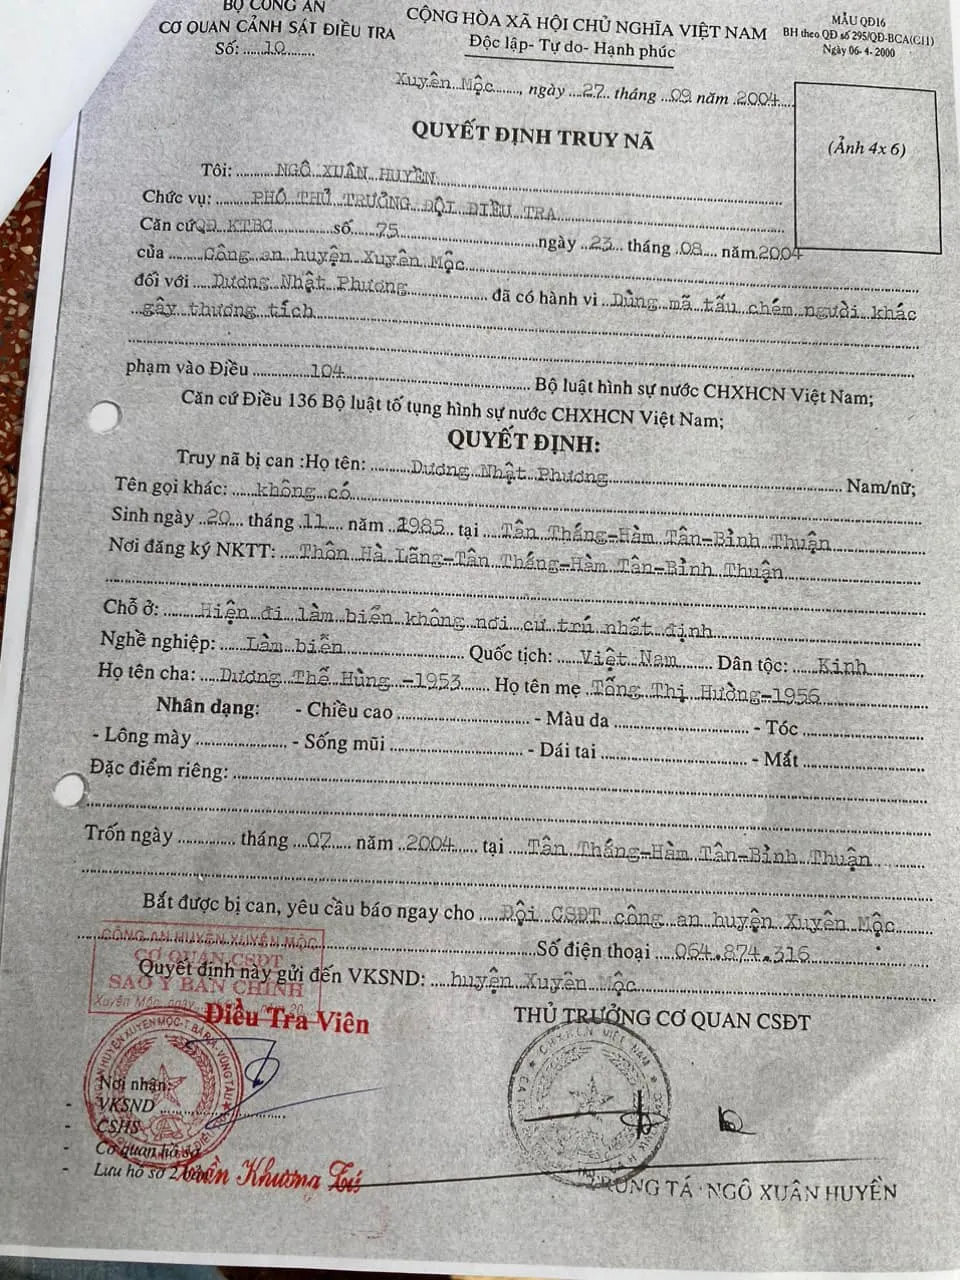 BỘ CÔNG AN
CƠ QUAN CẢNH SÁT ĐIỀU TRA
Số: ......10.........
CỘNG HÒA XÃ HỘI CHỦ NGHĨA VIỆT NAM
Độc lập- Tự do- Hạnh phúc
MẪU QĐ16
BH theo QĐ số 295/QĐ-BCA(C11)
Ngày 06- 4- 2000
Xuyên Mộc......., ngày ...27.. tháng ...09 năm .2004....
(Ảnh 4x 6)
QUYẾT ĐỊNH TRUY NÃ
Tôi: ..........NGÔ XUÂN HUYỀN
Chức vụ: .....PHÓ THỦ TRƯỞNG ĐỘI ĐIỀU TRA
Căn cứ QĐ KTBC ............số....75..................ngày ..23... tháng .08.... năm.2004
của ........Công an huyện Xuyên Mộc
đối với ....Dương Nhật Phương............... đã có hành vi ..Dùng mã tấu chém người khác
..gây thương tích
phạm vào Điều .............104............................ Bộ luật hình sự nước CHXHCN Việt Nam;
Căn cứ Điều 136 Bộ luật tố tụng hình sự nước CHXHCN Việt Nam;
QUYẾT ĐỊNH:
Truy nã bị can :Họ tên: .........Dương Nhật Phương............................ Nam/nữ;
Tên gọi khác: ....không có
Sinh ngày ..20.... tháng .11.... năm ..1985. tại ...Tân Thắng-Hàm Tân-Bỉnh Thuận
Nơi đăng ký NKTT: ...Thôn Hà Lãng-Tân Thắng-Hàm Tân-Bỉnh Thuận
Chỗ ở: ........Hiện đi làm biển không nơi cư trú nhất định
Nghề nghiệp: .....Làm biển.................... Quốc tịch: .....Việt Nam....... Dân tộc: .....Kinh
Họ tên cha: ....Dương Thế Hùng -1953..... Họ tên mẹ .Tống Thị Hường-1956
Nhân dạng: - Chiều cao ......................... - Màu da ......................... - Tóc ...................
- Lông mày ................. - Sống mũi ......................... - Dái tai ........................... - Mắt ...................
Đặc điểm riêng: ............................
Trốn ngày ............ tháng ...07.... năm ..2004..... tại ....Tân Thắng-Hàm Tân-Bỉnh Thuận
Bắt được bị can, yêu cầu báo ngay cho ....Đội CSĐT công an huyện Xuyên Mộc
............................Số điện thoại ....064.874.316
Quyết định này gửi đến VKSND: ....huyện Xuyên Mộc
CÔNG AN HUYỆN XUYÊN MỘC
CƠ QUAN CSĐT
SAO Y BẢN CHÍNH
Xuyên Mộc, ngày
Điều Tra Viên
THỦ TRƯỞNG CƠ QUAN CSĐT
Nơi nhận:
- VKSND .....................
- CSHS
- Cơ quan hồ sơ
- Lưu hồ sơ 2
Khương Tú
TRUNG TÁ - NGÔ XUÂN HUYỀN